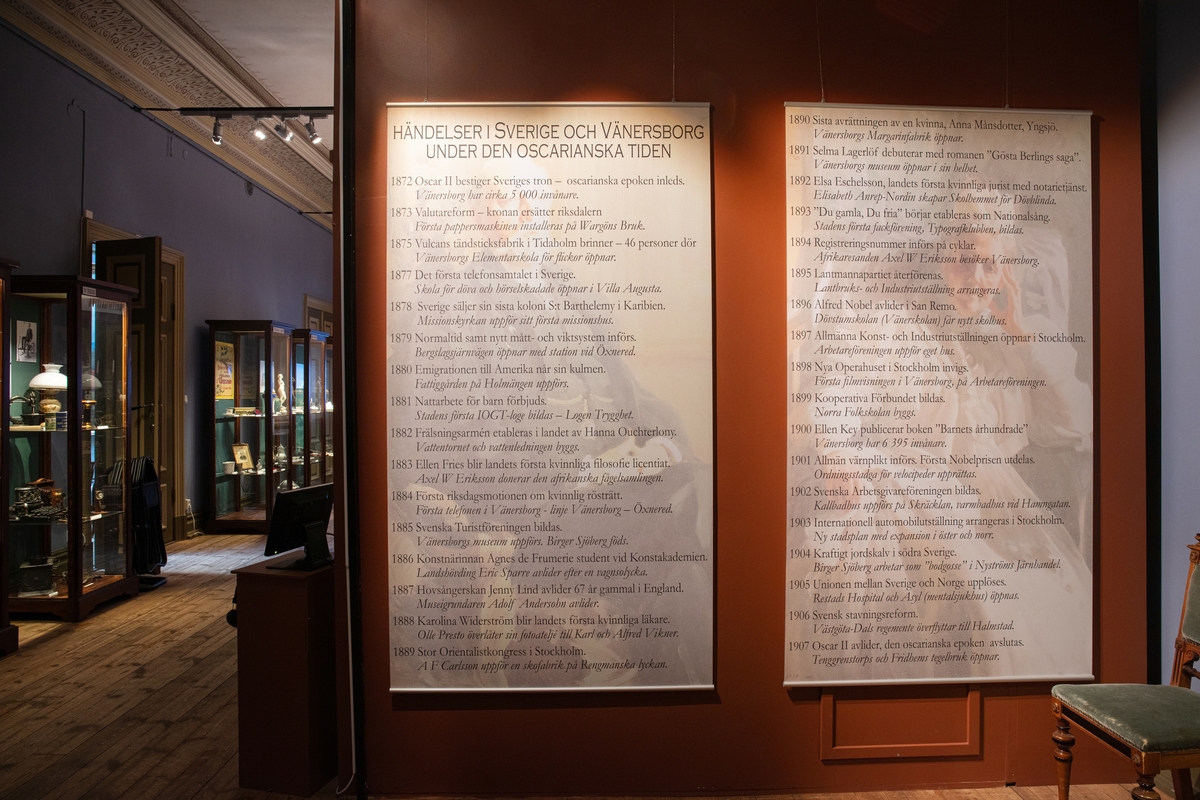 HÄNDELSER I SVERIGE OCH VÄNERSBORG
UNDER DEN OSCARIANSKA TIDEN
1872 Oscar II bestiger Sveriges tron – oscarianska epoken inleds.
Vänersborg har cirka 5 000 invånare.
1873 Valutareform – kronan ersätter riksdalern
Första pappersmaskinen installeras på Wargöns Bruk.
1875 Vulcans tändsticksfabrik i Tidaholm brinner – 46 personer dör
Vänersborgs Elementarskola för flickor öppnar.
1877 Det första telefonsamtalet i Sverige.
Skola för döva och hörselskadade öppnar i Villa Augusta.
1878 Sverige säljer sin sista koloni S:t Barthelemy i Karibien.
Missionskyrkan uppför sitt första missionshus.
1879 Normaltid samt nytt mått- och viktsystem införs.
Bergslagsjärnvägen öppnar med station vid Öxnered.
1880 Emigrationen till Amerika når sin kulmen.
Fattiggården på Holmängen uppförs.
1881 Nattarbete för barn förbjuds.
Stadens första IOGT-loge bildas – Logen Trygghet.
1882 Frälsningsarmén etableras i landet av Hanna Ouchterlony.
Vattentornet och vattenledningen byggs.
1883 Ellen Fries blir landets första kvinnliga filosofie licentiat.
Axel W Eriksson donerar den afrikanska fågelsamlingen.
1884 Första riksdagsmotionen om kvinnlig rösträtt.
Första telefonen i Vänersborg - linje Vänersborg – Öxnered.
1885 Svenska Turistföreningen bildas.
Vänersborgs museum uppförs. Birger Sjöberg föds.
1886 Konstnärinnan Agnes de Frumerie student vid Konstakademien.
Landshövding Eric Sparre avlider efter en vagnsolycka.
1887 Hovsångerskan Jenny Lind avlider 67 år gammal i England.
Museigrundaren Adolf Andersohn avlider.
1888 Karolina Widerström blir landets första kvinnliga läkare.
Olle Presto överlåter sin fotoateljé till Karl och Alfred Vikner.
1889 Stor Orientalistkongress i Stockholm.
A F Carlsson uppför en skofabrik på Rengmanska lyckan.
1890 Sista avrättningen av en kvinna, Anna Månsdotter, Yngsjö.
Vänersborgs Margarinfabrik öppnar.
1891 Selma Lagerlöf debuterar med romanen ”Gösta Berlings saga”.
Vänersborgs museum öppnar i sin helhet.
1892 Elsa Eschelsson, landets första kvinnliga jurist med notarietjänst.
Elisabeth Anrep-Nordin skapar Skolhemmet för Dövblinda.
1893 ”Du gamla, Du fria” börjar etableras som Nationalsång.
Stadens första fackförening, Typografklubben, bildas.
1894 Registreringsnummer införs på cyklar.
Afrikaresanden Axel W Eriksson besöker Vänersborg.
1895 Lantmannapartiet återförenas.
Lantbruks- och Industriutställning arrangeras.
1896 Alfred Nobel avlider i San Remo.
Dövstumskolan (Vänerskolan) får nytt skolhus.
1897 Allmänna Konst- och Industriutställningen öppnar i Stockholm.
Arbetareföreningen uppför eget hus.
1898 Nya Operahuset i Stockholm invigs.
Första filmvisningen i Vänersborg, på Arbetareföreningen.
1899 Kooperativa Förbundet bildas.
Norra Folkskolan byggs.
1900 Ellen Key publicerar boken ”Barnets århundrade”
Vänersborg har 6 395 invånare.
1901 Allmän värnplikt införs. Första Nobelprisen utdelas.
Ordningsstadga för velocipeder upprättas.
1902 Svenska Arbetsgivareföreningen bildas.
Kallbadhus uppförs på Skräcklan, varmbadhus vid Hamngatan.
1903 Internationell automobilutställning arrangeras i Stockholm.
Ny stadsplan med expansion i öster och norr.
1904 Kraftigt jordskalv i södra Sverige.
Birger Sjöberg arbetar som ”bodgosse” i Nyströms Järnhandel.
1905 Unionen mellan Sverige och Norge upplöses.
Restads Hospital och Asyl (mentalsjukhus) öppnas.
1906 Svensk stavningsreform.
Västgöta-Dals regemente överflyttar till Halmstad.
1907 Oscar II avlider, den oscarianska epoken avslutas.
Tenggrenstorps och Fridhems tegelbruk öppnar.